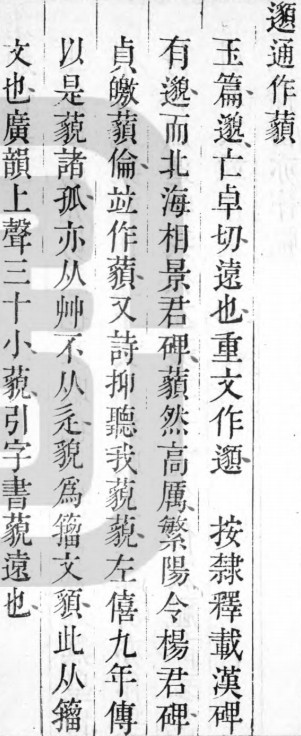 通作
玉篇邈亡卓切遠也重文作 按隸釋載漢碑
有邈而北海相景君碑然高厲繁陽令楊君碑
貞皦倫竝作又詩抑聽我藐藐左僖九年傳
以是藐諸孤亦从艸不从辵貌爲籒文䫉此从籒
文也廣韻上聲三十小藐引字書藐遠也